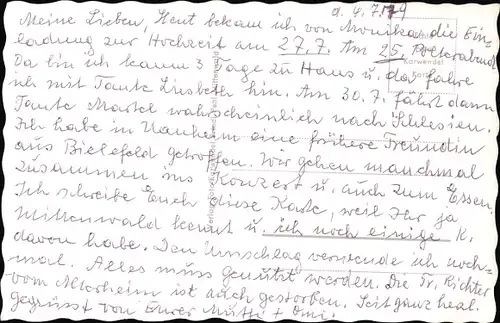 d. 4.7.79
Meine Lieben, Heut bekam ich von Monika die Ein-
ladung zur Hochzeit am 27.7. Am 25. Polterabend
Karwendel
Da bin ich kaum 3 Tage zu Haus u. da fahre
ich mit Tante Lisbeth hin. Am 30.7. fährt dann
Tante Martel wahrscheinlich nach Schlesien.
Ich habe in Nauheim eine frühere Freundin
aus Bielefeld getroffen. Wir gehen manchmal
zusammen ins Konzert u. auch zum Essen
Ich schreibe Euch diese Karte, weil Ihr ja
Mittenwald kennt u. ich noch einige K.
davon habe. Den Umschlag verwende ich noch-
mal. Alles muss genützt werden. Die Fr. Richter
vom Altersheim ist auch gestorben. Seit ganz herzl.
gegrüsst von Eurer Mutti + Omi.